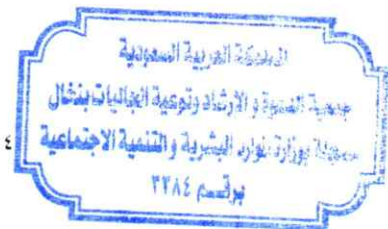 المملكة العربية السعودية
جمعية الدعوة والإرشاد وتوعية الجاليات بنثال
مسجلة بوزارة الموارد البشرية والتنمية الاجتماعية
برقم ٣٣٨٤
٤